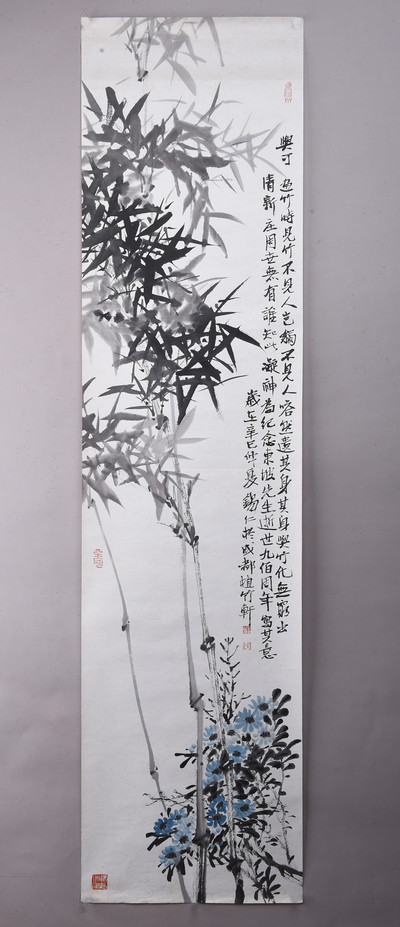 與可画竹時見竹不見人岂獨不見人嗒然遺其身其身與竹化無窮出
清新庄周世無有誰知此凝神為纪念東坡先生逝世九佰周年寫其意
歲在辛巳仲夏錫仁於成都竹軒